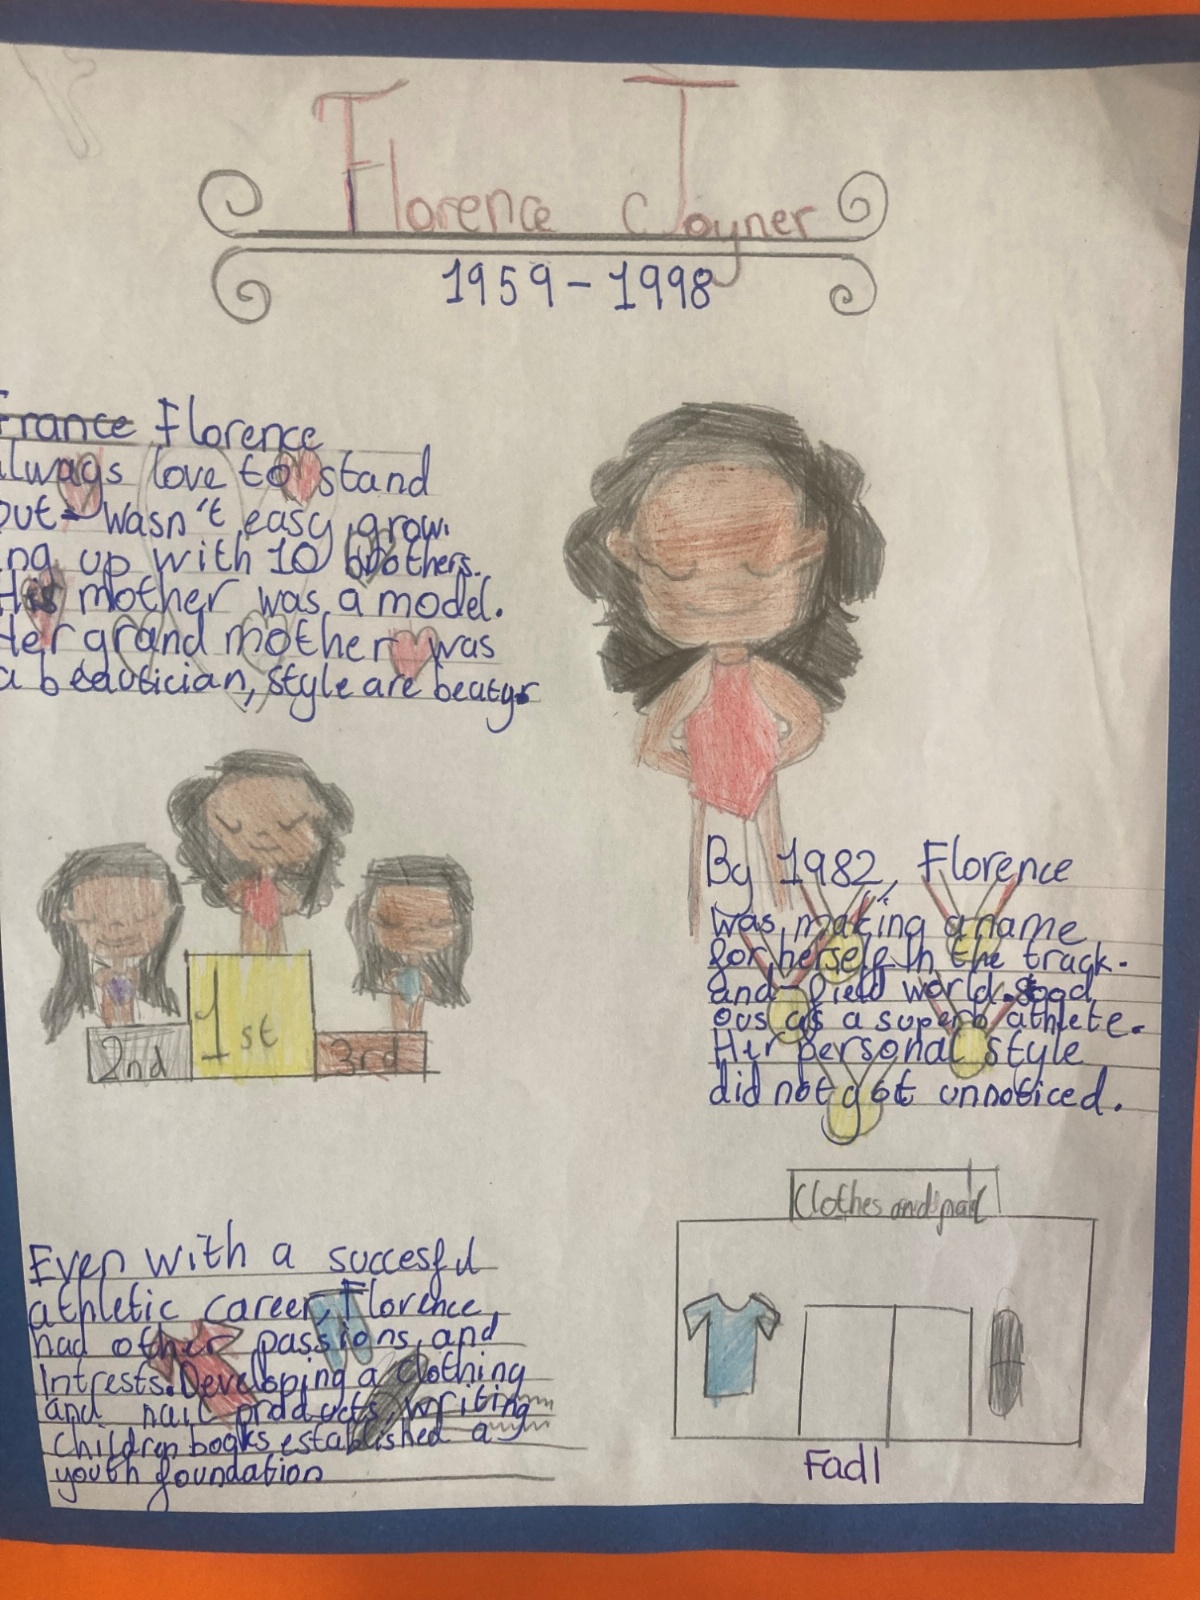 Florence Joyner
1959-1998
France Florence
always love to stand
out- wasn't easy grow.
ing up with 10 brothers.
His mother was a model.
Her grand mother was
a beautician, style are beatys
1st
2nd
3rd
By 1982, Florence
was making a name
for herself In the track-
and-field world.
ous as a superb athlete.
Her personal style
did not got unnoticed.
Clothes and nail
Even with a succesful
athletic career, Florence
had other passions, and
Intrests. Developing a clothing
and nail products, writing
Children books established a
youth foundation
Fadl